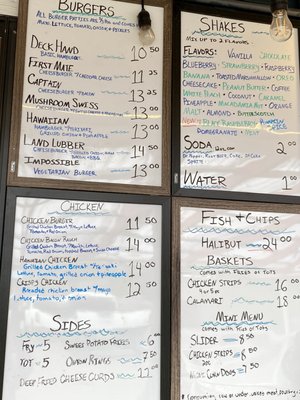 BURGERS
ALL BURGER PATTIES ARE
LETTUCE, TOMATO, ONION & PICKLES
DECK HAND 10 50
BASIC HAMBURGER
FIRST MATE 11 25
CHEESEBURGER
CAPTAIN 13 00
CHEESEBURGER
MUSHROOM SWISS 13 00
HAWAIIAN 13 00
HAMBURGER
LAND LUBBER 14 00
IMPOSSIBLE 13 00
VEGETARIAN BURGER
SHAKES
MIX UP TO 2 FLAVORS
FLAVORS: VANILLA CHOCOLATE
BLUEBERRY STRAWBERRY RASPBERRY
BANANA TOASTED MARSHMALLOW OREO
CHEESECAKE PEANUT BUTTER COFFEE
WHITE PEACH COCONUT CARAMEL
PINEAPPLE MACADAMIA NUT ORANGE
MALT ALMOND BUTTERSCOTCH
RASPBERRY
POMEGRANATE
SODA 2 00
WATER 1 00
CHICKEN
CHICKEN BURGER 11 50
CHICKEN BACON RANCH 14 00
HAWAIIAN CHICKEN 14 00
GRILLED CHICKEN BREAST
LETTUCE, TOMATO, GRILLED ONION & PINEAPPLE
CRISPY CHICKEN 12 50
BREADED CHICKEN BREAST MAYO
LETTUCE, TOMATO, & ONION
SIDES
FRY 5 SWEET POTATO FRIES 6 00
TOT 5 ONION RINGS 7 50
DEEP FRIED CHEESE CURDS 11 00
FISH & CHIPS
HALIBUT 24 00
BASKETS
COMES WITH FRIES OR TOTS
CHICKEN STRIPS 16 00
CALAMARI 18 00
MINI MENU
COMES WITH FRIES OR TOTS
SLIDER 8 50
CHICKEN STRIPS 8 50
MINI CORN DOGS 7 50